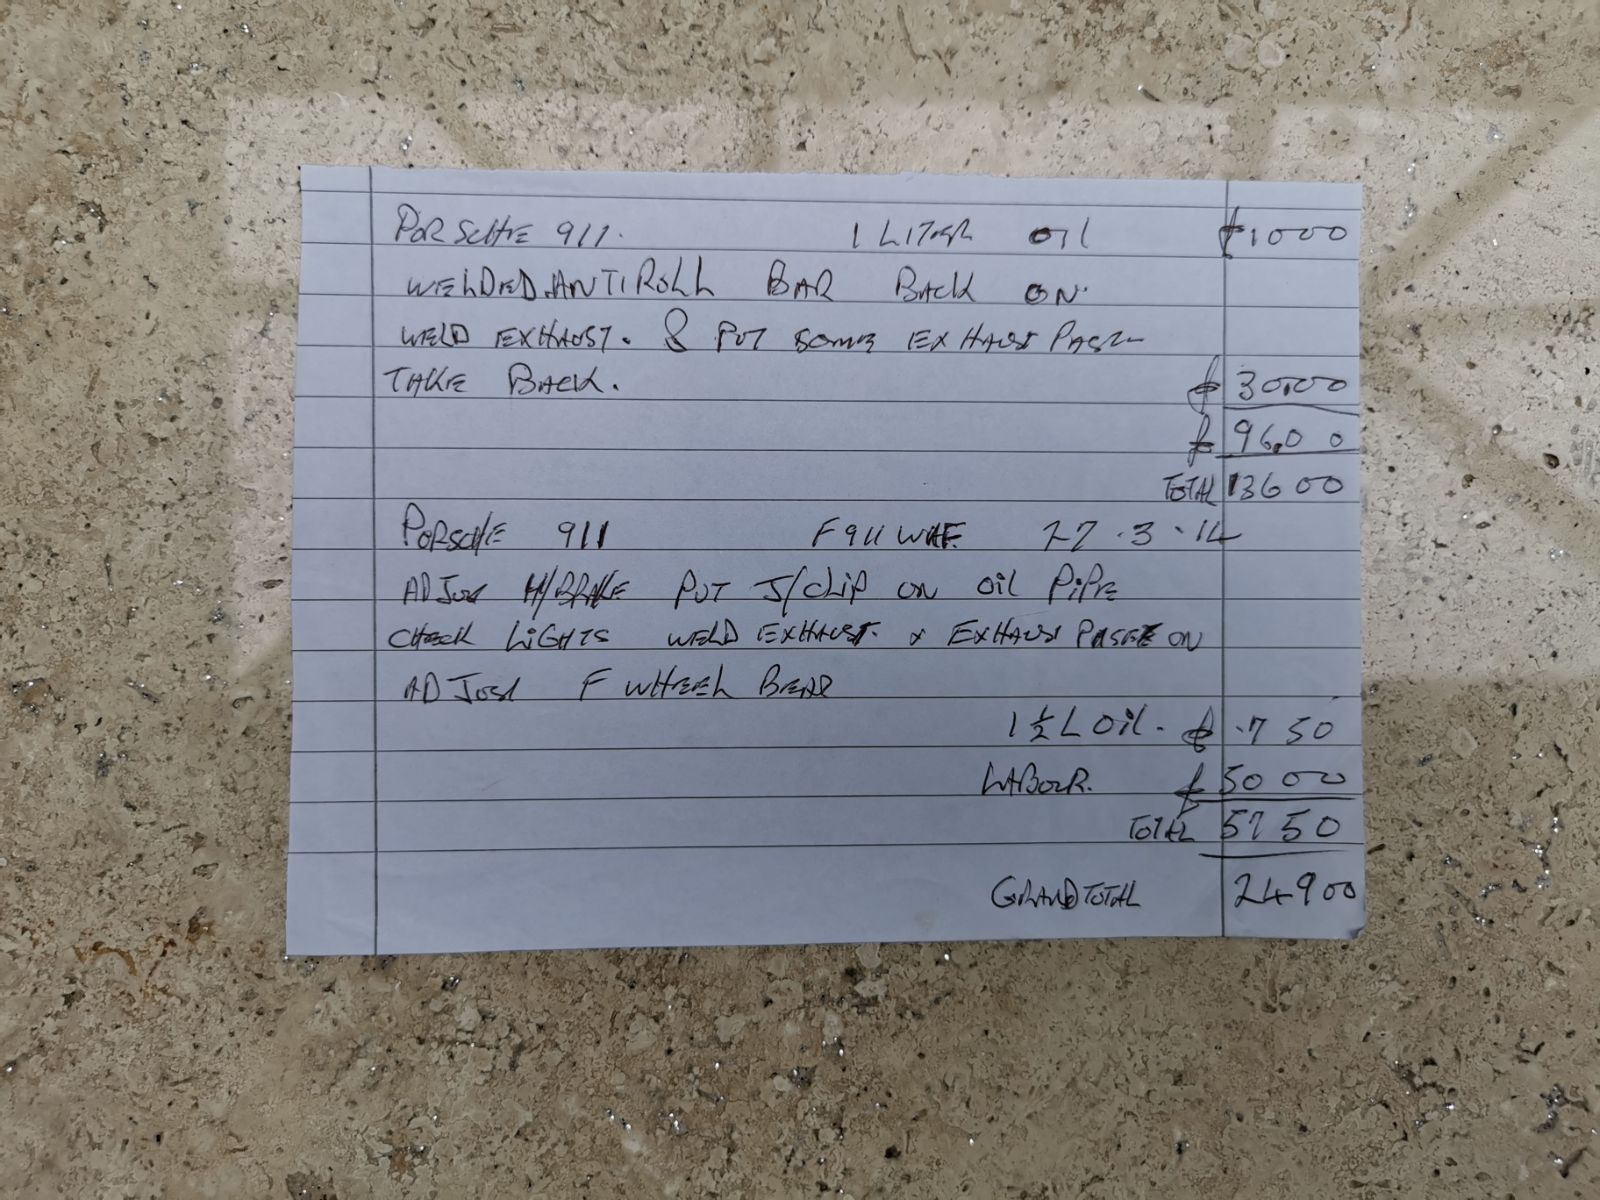 PORSCHE 911. 1 LITER OIL £1000
WELDED ANTIROLL BAR BACK ON.
WELD EXHAUST. & PUT SOME EXHAUST PASTE
TAKE BACK. £ 30.00
£ 96.00
TOTAL 136 00
PORSCHE 911 F911 WHF. 27.3.14
ADJUST H/BRAKE PUT J/CLIP ON OIL PIPE
CHECK LIGHTS WELD EXHAUST. & EXHAUST PASTE ON
ADJUST F WHEEL BEAR
1 ½ L OIL. £ .7 50
LABOUR. £ 50 00
TOTAL 57 50
GRAND TOTAL 249 00